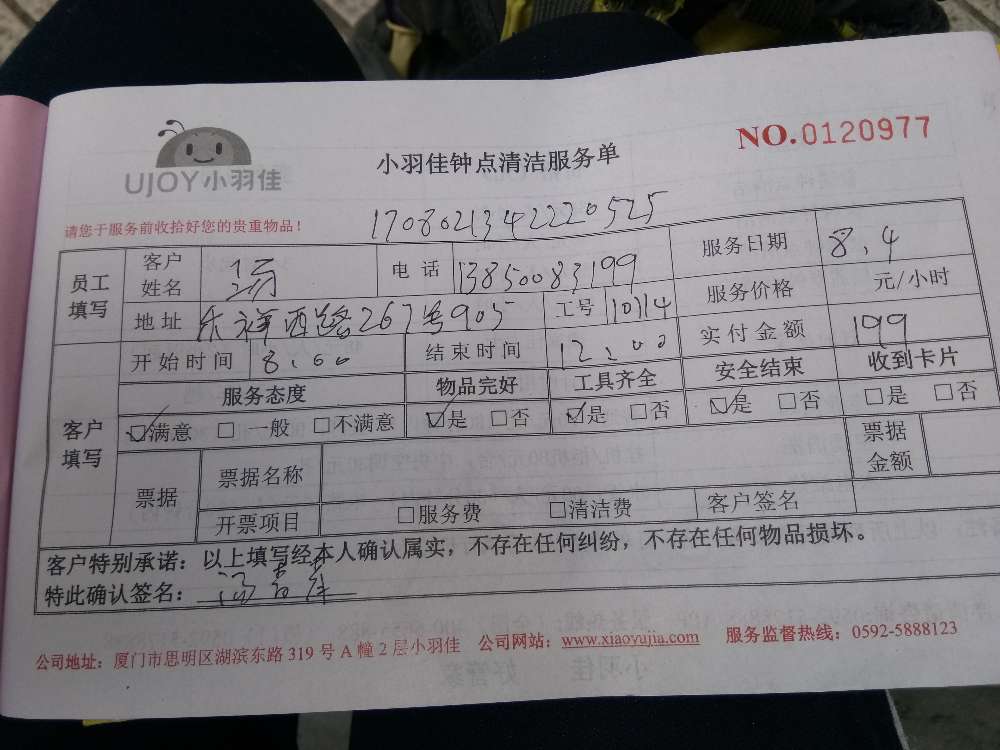 NO.0120977
UJOY小羽佳
小羽佳钟点清洁服务单
请您于服务前收拾好您的贵重物品！
1708021342220525
员工填写 客户姓名 电话 13850083199 服务日期 8.4
地址 乐祥西路267号905 工号 110114 服务价格 元/小时
客户填写 开始时间 8:00 结束时间 12:00 实付金额 199
服务态度 物品完好 工具齐全 安全结束 收到卡片
☑满意 □一般 □不满意 ☑是 □否 ☑是 □否 ☑是 □否 □是 □否
票据 票据名称 票据金额
开票项目 □服务费 □清洁费 客户签名
客户特别承诺：以上填写经本人确认属实，不存在任何纠纷，不存在任何物品损坏。
特此确认签名：
公司地址：厦门市思明区湖滨东路 319 号 A 幢 2 层小羽佳 公司网站：www.xiaoyujia.com 服务监督热线：0592-5888123